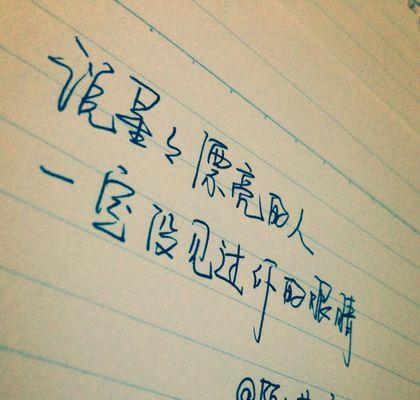 说星星漂亮的人
一定没见过你的眼睛
@陈